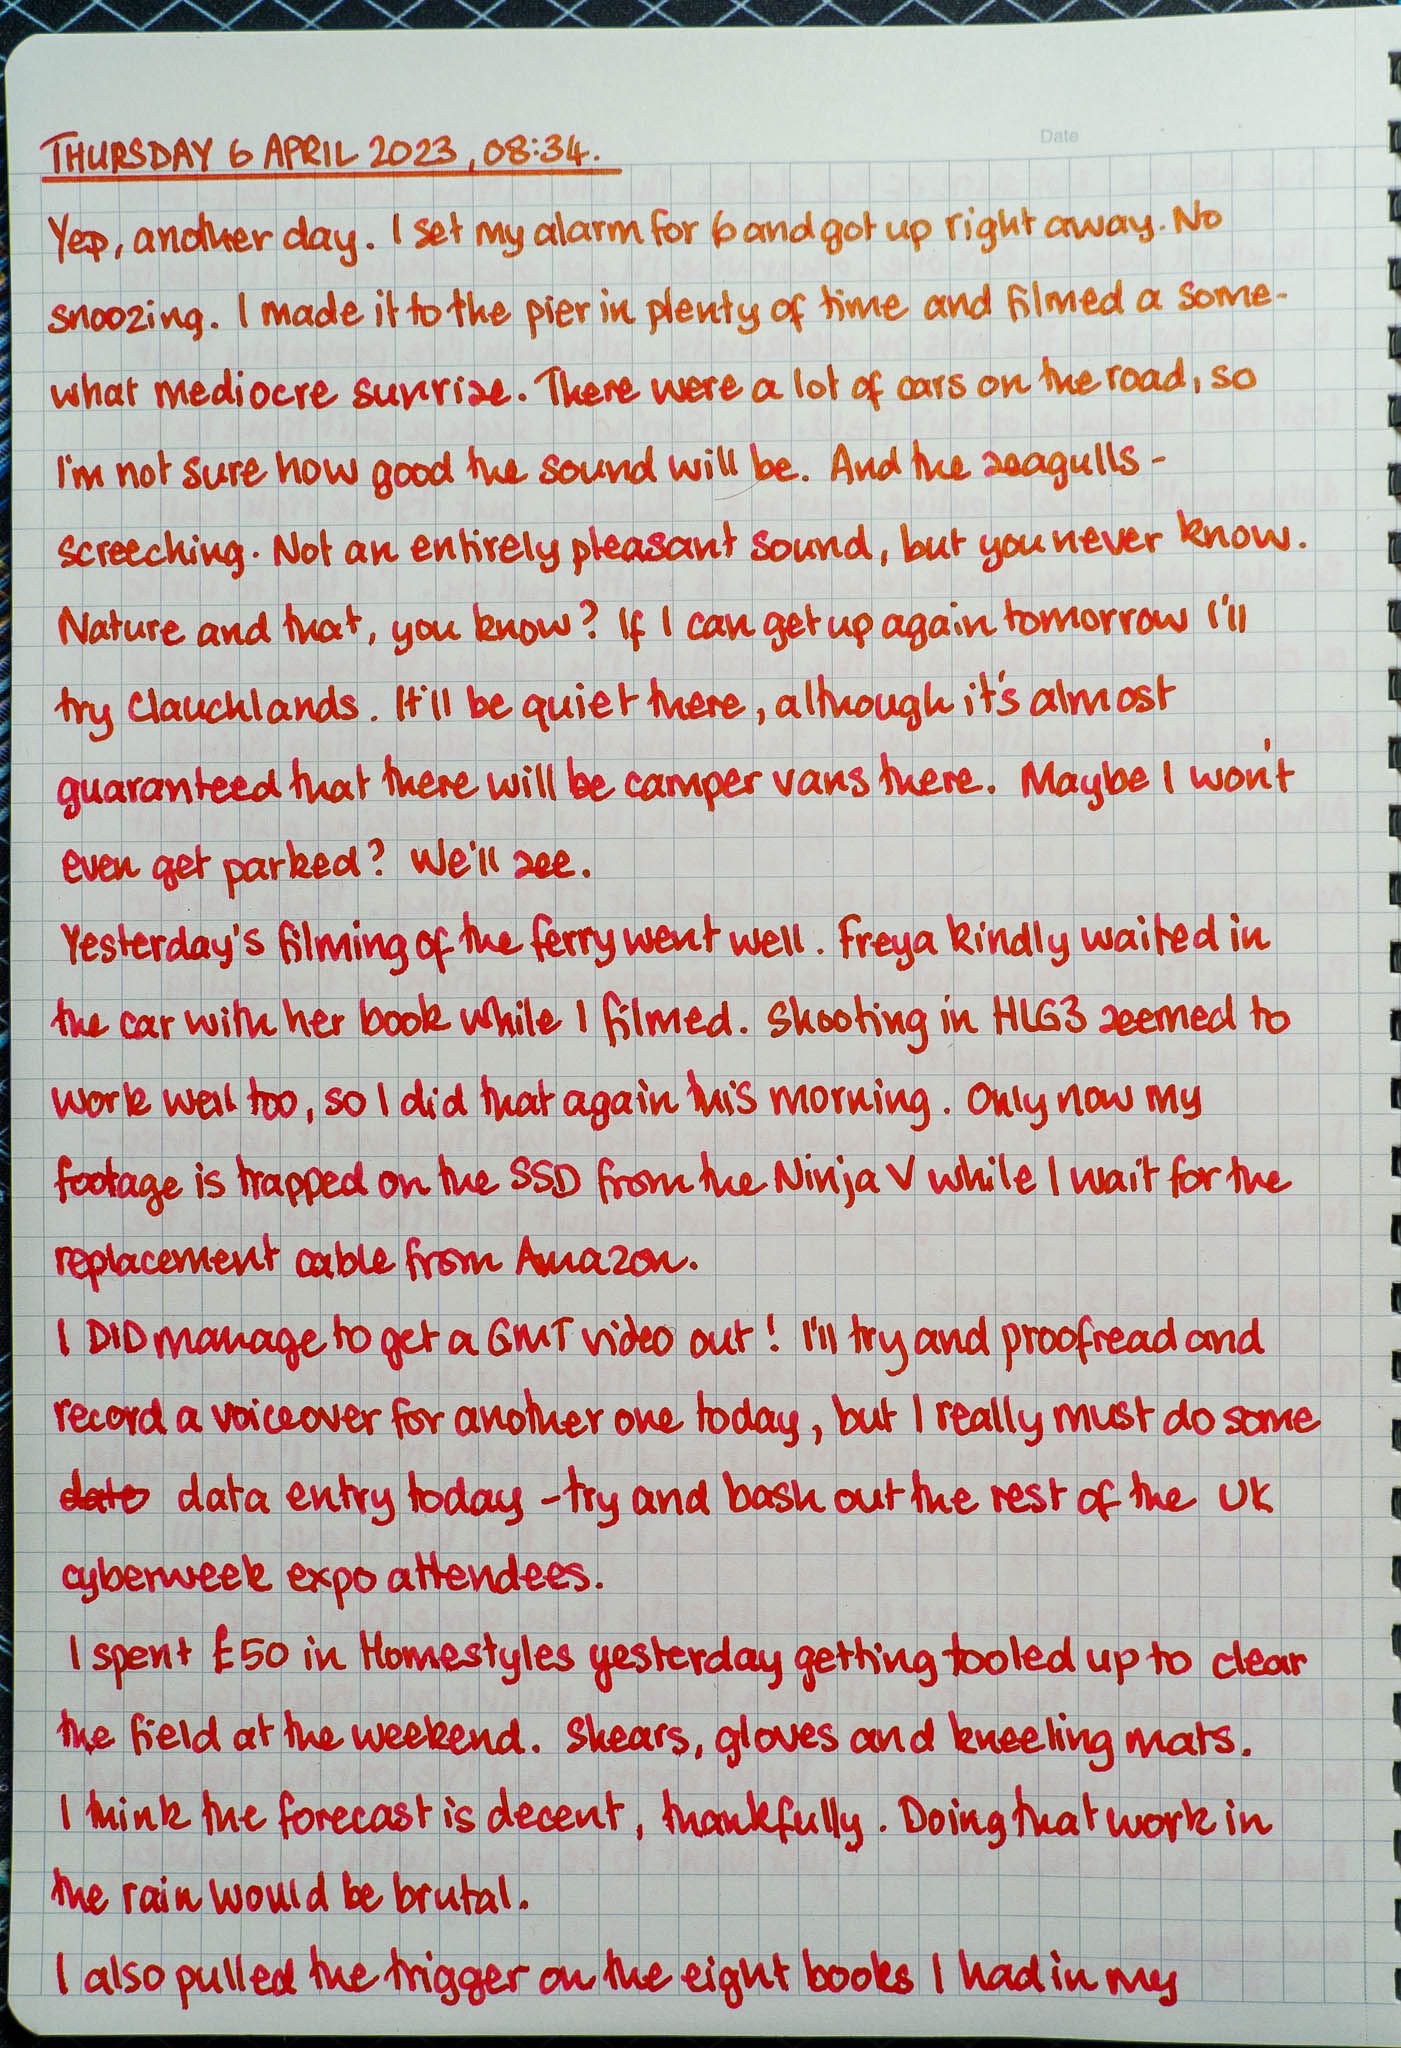 Date
THURSDAY 6 APRIL 2023, 08:34.
Yep, another day. I set my alarm for 6 and got up right away. No
snoozing. I made it to the pier in plenty of time and filmed a some-
what mediocre sunrise. There were a lot of cars on the road, so
I'm not sure how good the sound will be. And the seagulls -
screeching. Not an entirely pleasant sound, but you never know.
Nature and that, you know? If I can get up again tomorrow I'll
try Clauchlands. It'll be quiet there, although it's almost
guaranteed that there will be camper vans there. Maybe I won't
even get parked? We'll see.
Yesterday's filming of the ferry went well. Freya kindly waited in
the car with her book while I filmed. Shooting in HLG3 seemed to
work well too, so I did that again this morning. Only now my
footage is trapped on the SSD from the Ninja V while I wait for the
replacement cable from Amazon.
I DID manage to get a GMT video out! I'll try and proofread and
record a voiceover for another one today, but I really must do some
date data entry today - try and bash out the rest of the UK
cyberweek expo attendees.
I spent £50 in Homestyles yesterday getting tooled up to clear
the field at the weekend. Shears, gloves and kneeling mats.
I think the forecast is decent, thankfully. Doing that work in
the rain would be brutal.
I also pulled the trigger on the eight books I had in my